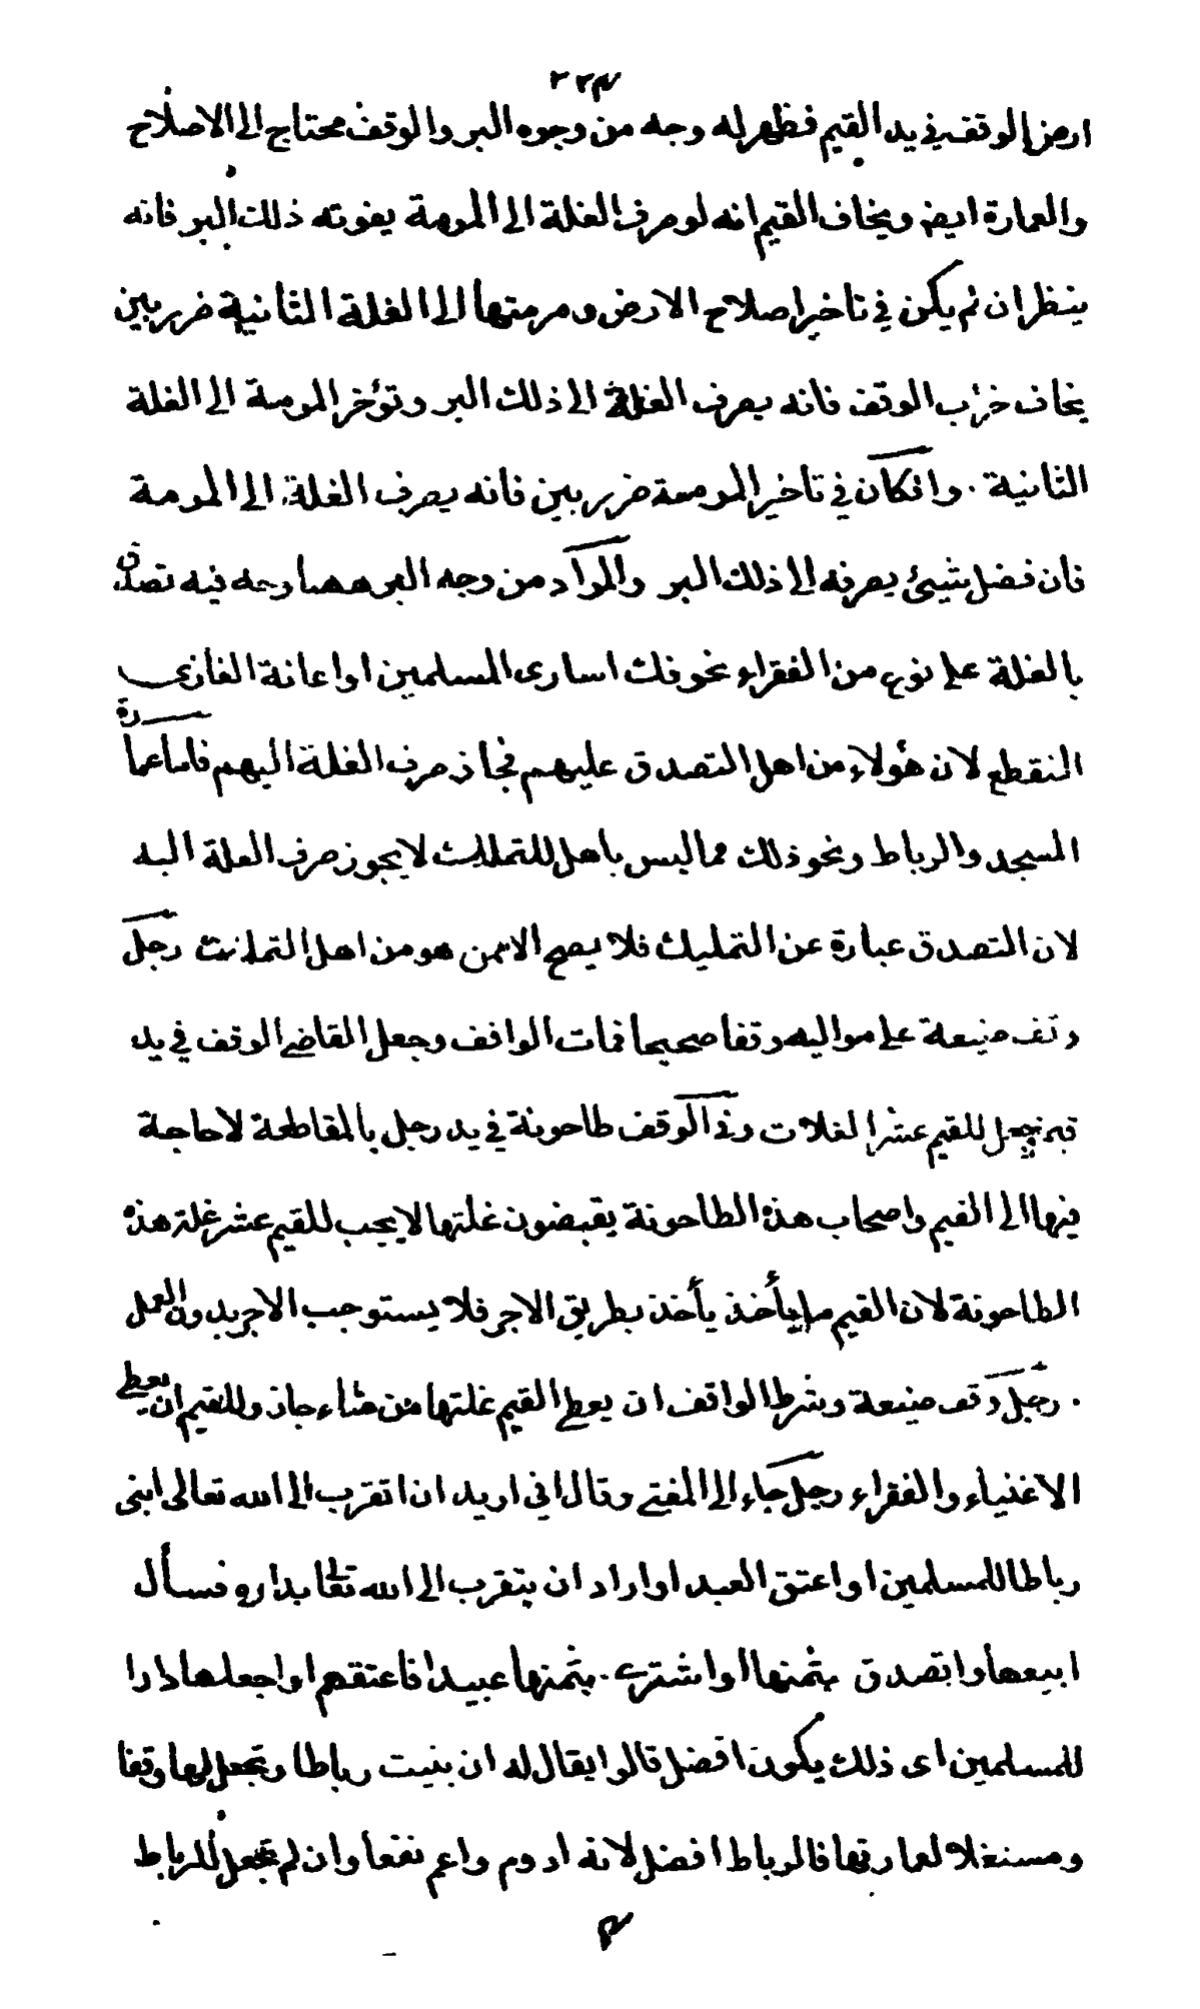 ٢٢٣
ارض الوقف في يد القيم فظهر له وجه من وجوه البر والوقف محتاج الى الاصلاح
والعمارة ايض ويخاف القيم انه لو صرف الغلة الى المرمة يفوته ذلك البر فانه
ينظر ان لم يكن في تاخير اصلاح الارض ومرمتها الى الغلة الثانية ضرر بين
يخاف خراب الوقف فانه يصرف الغلة الى ذلك البر وتؤخر المرمة الى الغلة
الثانية . وانكان في تاخير المرمة ضرر بين فانه يصرف الغلة الى المرمة
فان فضل شيئ يصرفه الى ذلك البر والمراد من وجه البر ههنا وجه فيه تصدق
بالغلة على نوع من الفقراء نحو فك اسارى المسلمين او اعانة الغازي
المنقطع لان هؤلاء من اهل التصدق عليهم فجاز صرف الغلة اليهم فاما عمارة
المسجد والرباط ونحو ذلك مما ليس باهل للتمليك لا يجوز صرف الغلة اليه
لان التصدق عبارة عن التمليك فلا يصح الا ممن هو من اهل التمليك رجل
وقف ضيعة على مواليه وقفا صحيحا فمات الواقف وجعل القاضي الوقف في يد
قيم فجعل للقيم عشر الغلات وفي الوقف طاحونة في يد رجل بالمقاطعة لا حاجة
فيها الى القيم واصحاب هذه الطاحونة يقبضون غلتها لا يجب للقيم عشر غلة هذه
الطاحونة لان القيم ما يأخذ يأخذ بطريق الاجر فلا يستوجب الاجر بدون العمل
. رجل وقف ضيعة وشرط الواقف ان يعطي القيم غلتها من شاء جاز وللقيم ان يعطي
الاغنياء والفقراء رجل جاء الى المفتي وقال اني اريد ان اتقرب الى الله تعالى ابنى
رباطا للمسلمين او اعتق العبد او اراد ان يتقرب الى الله تعالى بداره فسأل
ابيعها واتصدق بثمنها او اشتري . بثمنها عبيدا فاعتقهم او اجعلها دارا
للمسلمين اى ذلك يكون افضل قالوا يقال له ان بنيت رباطا وتجعل لها وقفا
ومستغلا لعمارتها فالرباط افضل لانه ادوم واعم نفعا وان لم تجعل للرباط